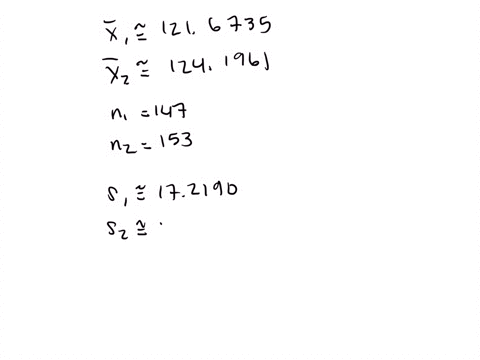 x̄₁ ≅ 121.6735
x̄₂ ≅ 124.1961
n₁ = 147
n₂ = 153
s₁ ≅ 17.2190
s₂ ≅ .